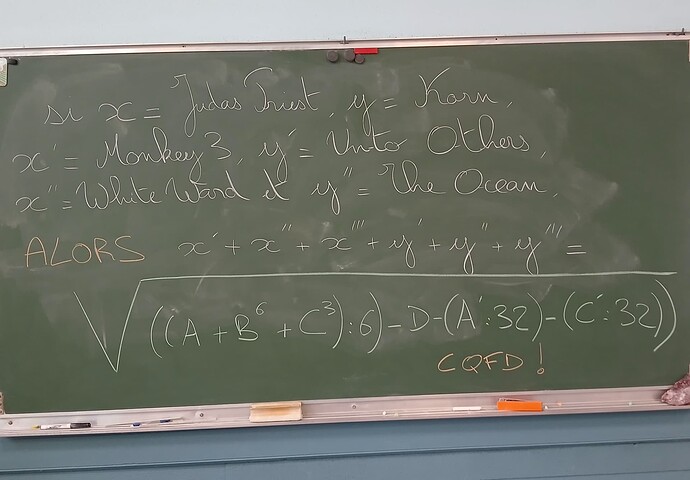 si x = Judas Priest, y = Korn,
x' = Monkey 3, y' = Unto Others,
x'' = White Ward et y'' = The Ocean,
ALORS x' + x'' + x''' + y' + y'' + y''' =
√((A + B⁶ + C³) : 6) - D - (A' : 32) - (C' : 32))
CQFD !